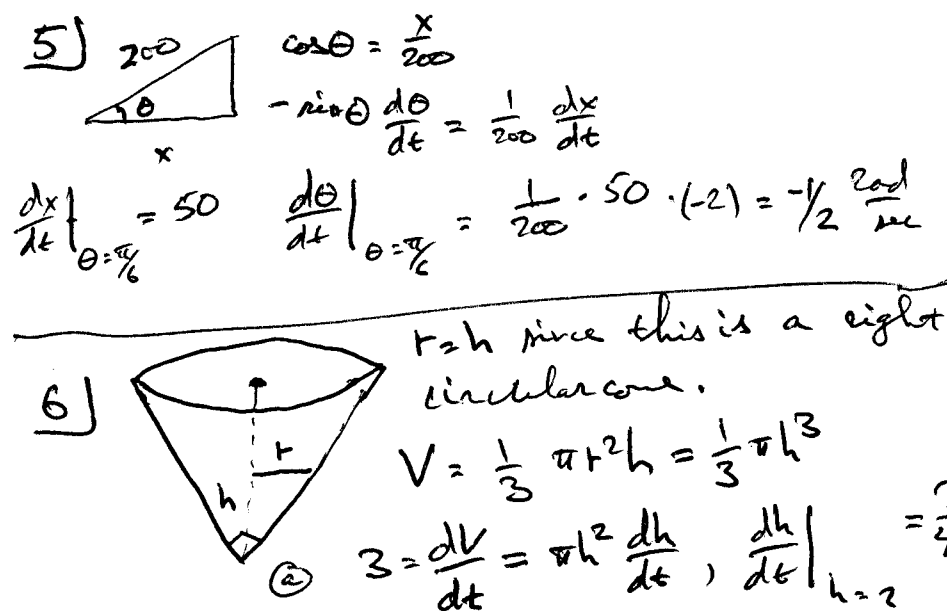 5] 200 θ x cosθ = x/200
-sinθ dθ/dt = 1/200 dx/dt
dx/dt|θ=π/6 = 50 dθ/dt|θ=π/6 = 1/200 · 50 · (-2) = -1/2 rad/sec
r=h since this is a right
6] circular cone.
r h V = 1/3 πr²h = 1/3 πh³
ⓐ 3 = dV/dt = πh² dh/dt , dh/dt|h=2 =